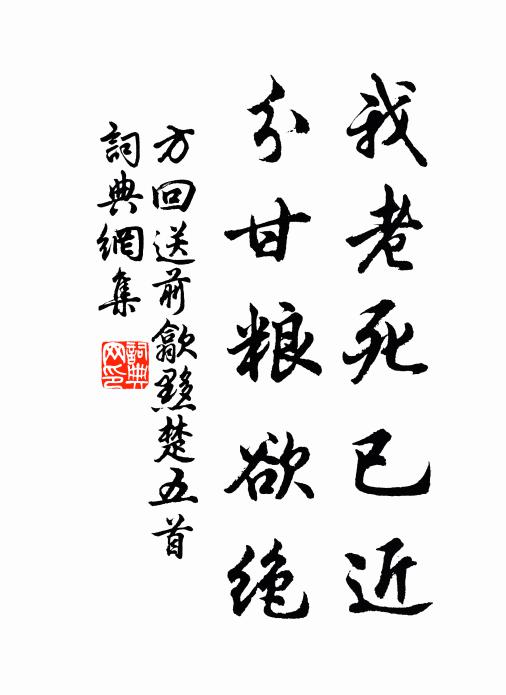 我老死已近
分甘粮欲绝
方回送前歙黟楚五首
詞典網集
詞典网印